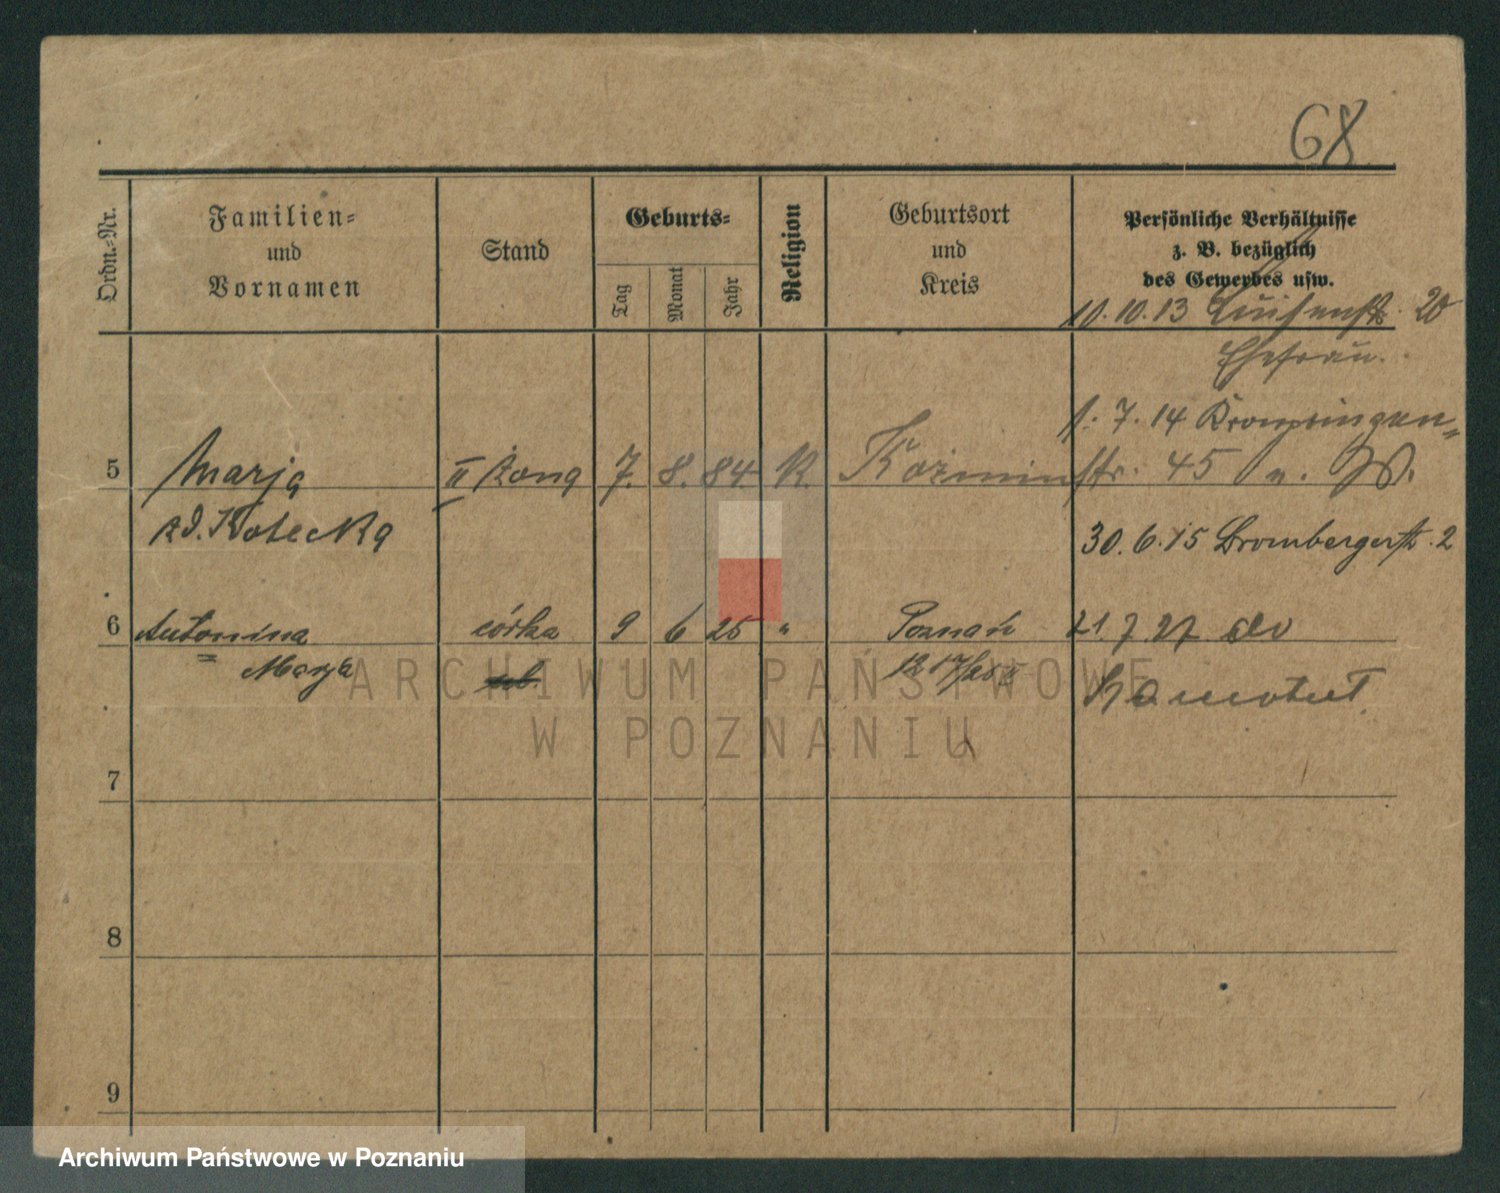 68
Ordn.=Nr.
Familien=
und
Vornamen
Stand
Geburts=
Tag
Monat
Jahr
Religion
Geburtsort
und
Kreis
Persönliche Verhältnisse
z. B. bezüglich
des Gewerbes usw.
10. 10. 13 Luisenstr. 20
Ehefrau.
1. 7. 14 Kronprinzen-
5 Marja II żona 7. 8. 84 K. Koźmin str. 45 v. W.
zd. Kotecka
30. 6. 15 Brombergerstr. 2
6 Antonina córka 9 6 25 " Poznań 21 7 27 do
Marja
12
7
8
9
ARCHIWUM PAŃSTWOWE
W POZNANIU
Archiwum Państwowe w Poznaniu